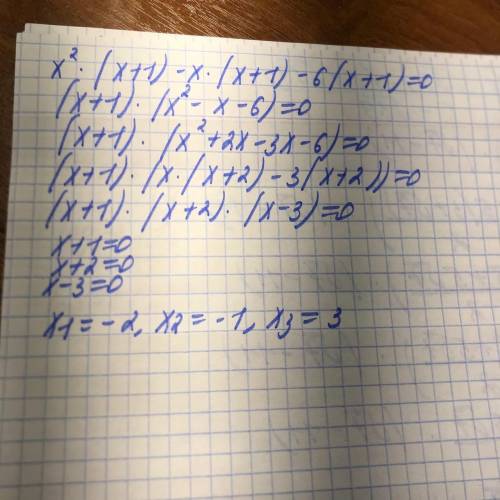 x² · (x+1) - x · (x+1) - 6(x+1)=0
(x+1) · (x² - x - 6)=0
(x+1) · (x²+2x-3x-6)=0
(x+1) · (x · (x+2) - 3(x+2))=0
(x+1) · (x+2) · (x-3)=0
x+1=0
x+2=0
x-3=0
x1=-2, x2=-1, x3=3